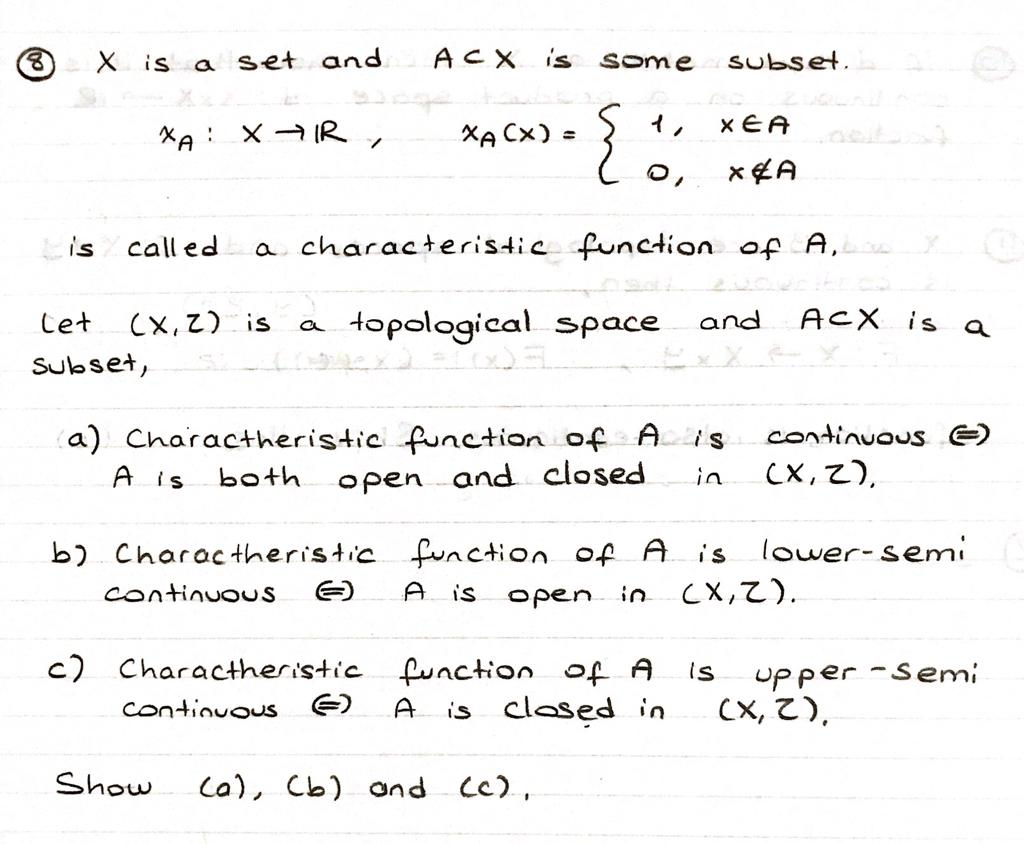 ⑧ X is a set and A ⊂ X is some subset.
χ_A : X → ℝ, χ_A(x) = { 1, x ∈ A
0, x ∉ A
is called a characteristic function of A.
Let (X, τ) is a topological space and A ⊂ X is a
subset,
a) Charactheristic function of A is continuous ⇔
A is both open and closed in (X, τ).
b) Charactheristic function of A is lower-semi
continuous ⇔ A is open in (X, τ).
c) Charactheristic function of A is upper-semi
continuous ⇔ A is closed in (X, τ).
Show (a), (b) and (c).